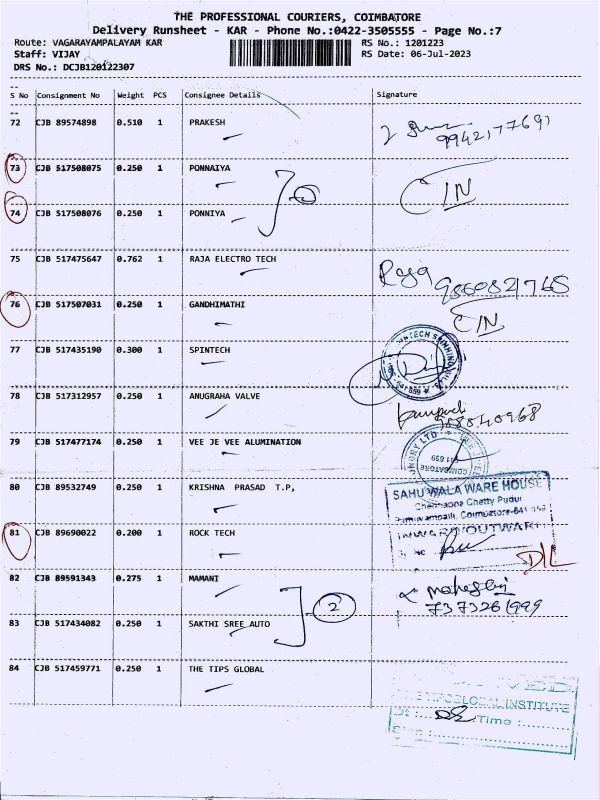 THE PROFESSIONAL COURIERS, COIMBATORE
Delivery Runsheet - KAR - Phone No.:0422-3505555 - Page No.:7
Route: VAGARAYAMPALAYAM KAR
RS No.: 1201223
Staff: VIJAY
RS Date: 06-Jul-2023
DRS No.: DCJB120122307
S No Consignment No Weight PCS Consignee Details Signature
72 CJB 89574898 0.510 1 PRAKESH
73 CJB 517508075 0.250 1 PONNAIYA
74 CJB 517508076 0.250 1 PONNIYA
75 CJB 517475647 0.762 1 RAJA ELECTRO TECH Raja
76 CJB 517507031 0.250 1 GANDHIMATHI
77 CJB 517435190 0.300 1 SPINTECH
78 CJB 517312957 0.250 1 ANUGRAHA VALVE
79 CJB 517477174 0.250 1 VEE JE VEE ALUMINATION
COIMBATORE
80 CJB 89532749 0.250 1 KRISHNA PRASAD T.P,
SAHUWALA WARE HOUSE
Chetty Pudur
Coimbatore-641
81 CJB 89690022 0.200 1 ROCK TECH
INWARD/OUTWARD
82 CJB 89591343 0.275 1 MAMANI
2
7373261999
83 CJB 517434082 0.250 1 SAKTHI SREE AUTO
84 CJB 517459771 0.250 1 THE TIPS GLOBAL
GLOBAL INSTITUTE
Time :